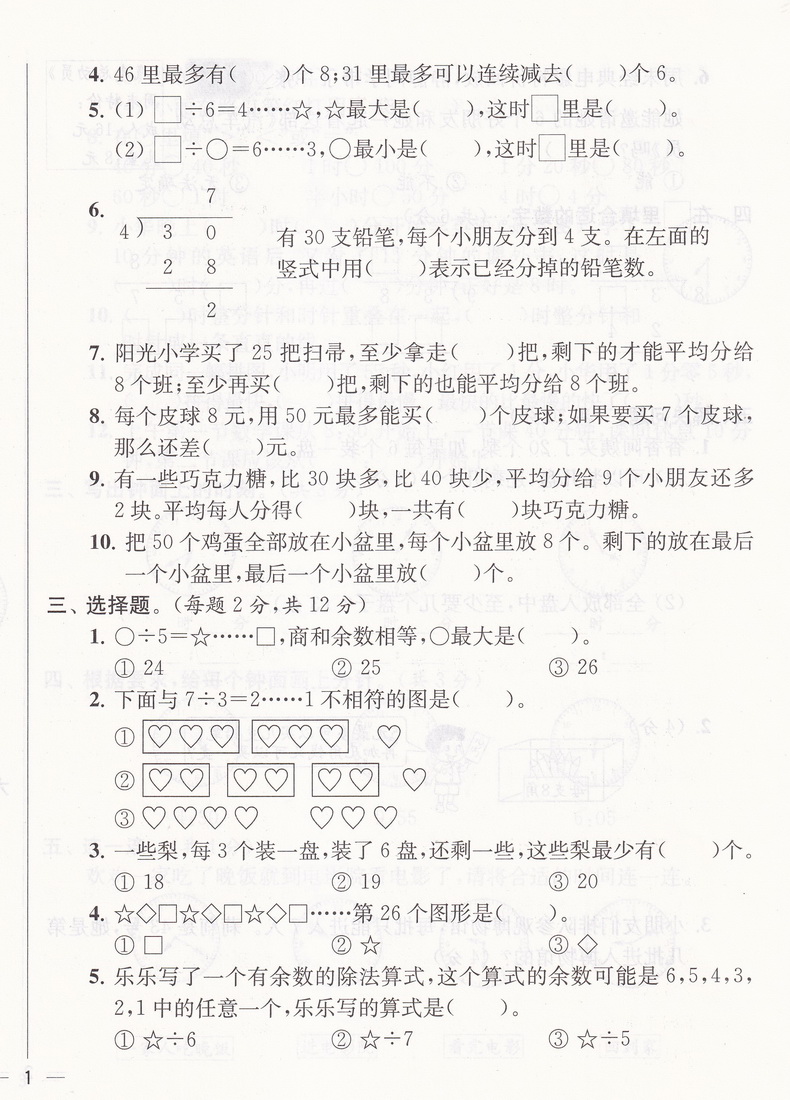 4. 46里最多有(　　)个8;31里最多可以连续减去(　　)个6。
5. (1) □÷6=4……☆,☆最大是(　　),这时□里是(　　)。
(2) □÷○=6……3,○最小是(　　),这时□里是(　　)。
6.
7
4)30
28
2
有30支铅笔,每个小朋友分到4支。在左面的
竖式中用(　　)表示已经分掉的铅笔数。
7. 阳光小学买了25把扫帚,至少拿走(　　)把,剩下的才能平均分给
8个班;至少再买(　　)把,剩下的也能平均分给8个班。
8. 每个皮球8元,用50元最多能买(　　)个皮球;如果要买7个皮球,
那么还差(　　)元。
9. 有一些巧克力糖,比30块多,比40块少,平均分给9个小朋友还多
2块。平均每人分得(　　)块,一共有(　　)块巧克力糖。
10. 把50个鸡蛋全部放在小盆里,每个小盆里放8个。剩下的放在最后
一个小盆里,最后一个小盆里放(　　)个。
三、选择题。(每题2分,共12分)
1. ○÷5=☆……□,商和余数相等,○最大是(　　)。
① 24　② 25　③ 26
2. 下面与7÷3=2……1不相符的图是(　　)。
① ♡♡♡ ♡♡♡ ♡
② ♡♡ ♡♡ ♡♡ ♡
③ ♡♡♡♡ ♡♡♡
3. 一些梨,每3个装一盘,装了6盘,还剩一些,这些梨最少有(　　)个。
① 18　② 19　③ 20
4. ☆◇□☆◇□☆◇□……第26个图形是(　　)。
① □　② ☆　③ ◇
5. 乐乐写了一个有余数的除法算式,这个算式的余数可能是6,5,4,3,
2,1中的任意一个,乐乐写的算式是(　　)。
① ☆÷6　② ☆÷7　③ ☆÷5
1 —